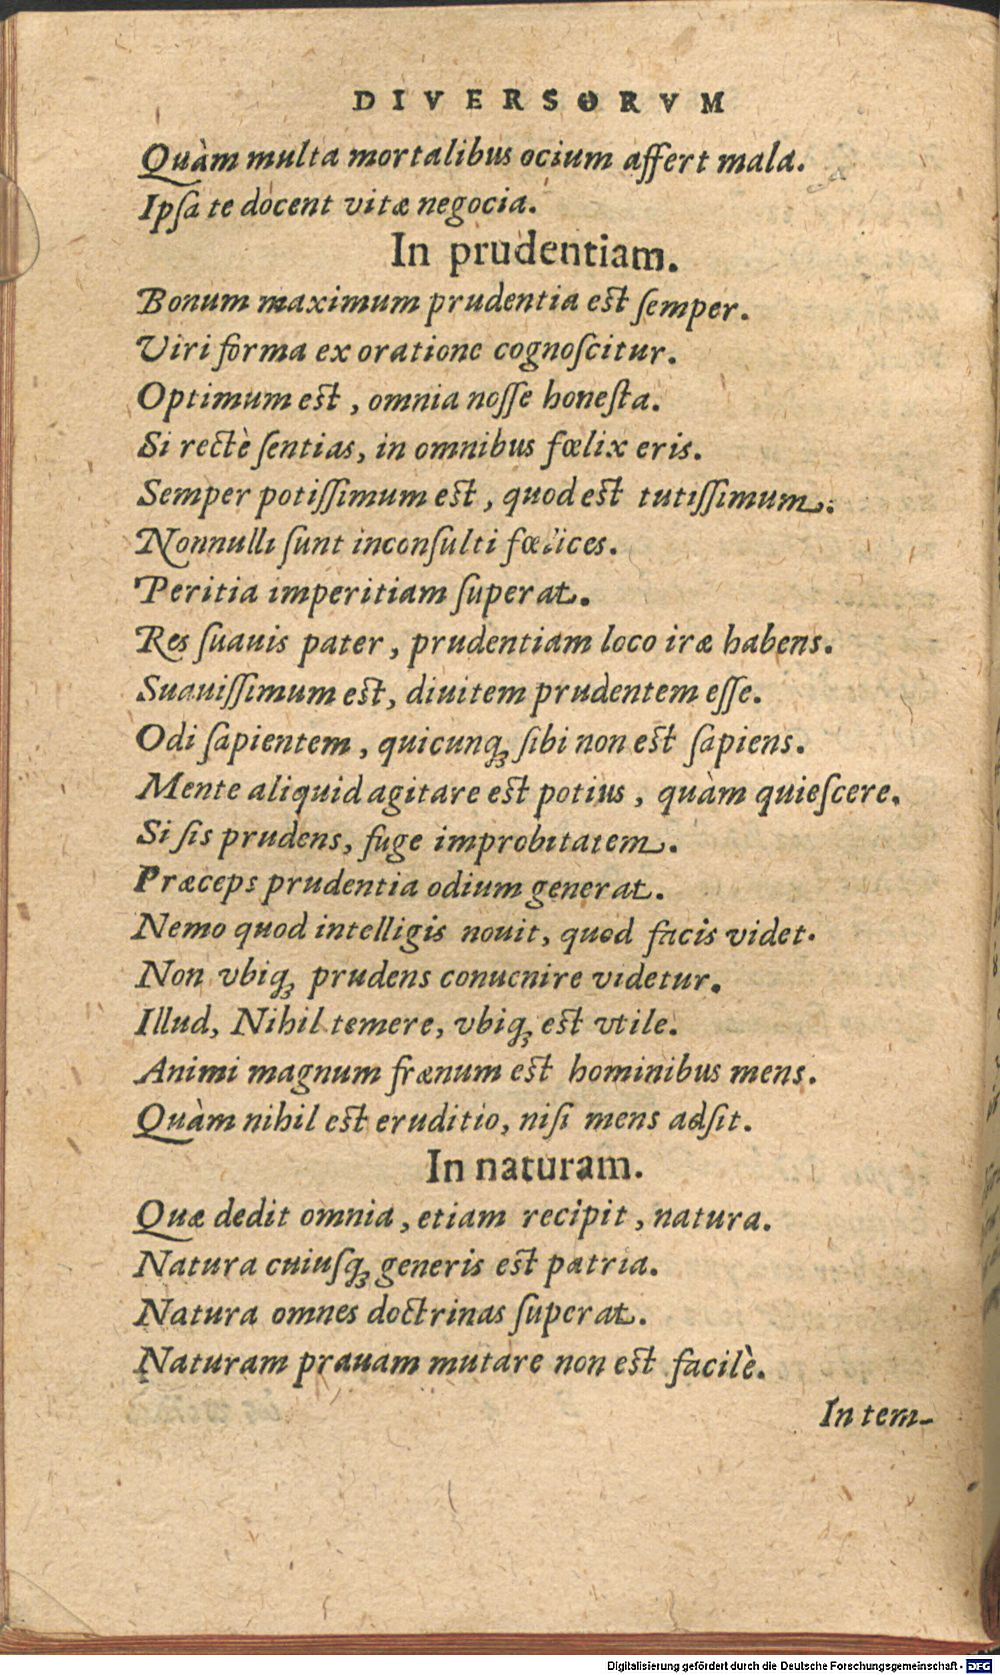 DIVERSORVM
Quàm multa mortalibus ocium affert mala.
Ipſa te docent vitæ negocia.
In prudentiam.
Bonum maximum prudentia eſt ſemper.
Viri forma ex oratione cognoſcitur.
Optimum eſt, omnia noſſe honeſta.
Si rectè ſentias, in omnibus fœlix eris.
Semper potiſſimum eſt, quod est tutiſſimum.
Nonnulli ſunt inconſulti fœlices.
Peritia imperitiam ſuperat.
Res ſuauis pater, prudentiam loco iræ habens.
Suauiſſimum eſt, diuitem prudentem eſſe.
Odi ſapientem, quicunq; ſibi non eſt ſapiens.
Mente aliquid agitare eſt potius, quàm quieſcere.
Si ſis prudens, fuge improbitatem.
Præceps prudentia odium generat.
Nemo quod intelligis nouit, quod facis videt.
Non vbiq; prudens conuenire videtur.
Illud, Nihil temere, vbiq; eſt vtile.
Animi magnum frænum eſt hominibus mens.
Quàm nihil eſt eruditio, niſi mens adſit.
In naturam.
Quæ dedit omnia, etiam recipit, natura.
Natura cuiuſq; generis eſt patria.
Natura omnes doctrinas ſuperat.
Naturam prauam mutare non eſt facilè.
In tem-
Digitalisierung gefördert durch die Deutsche Forschungsgemeinschaft - DFG